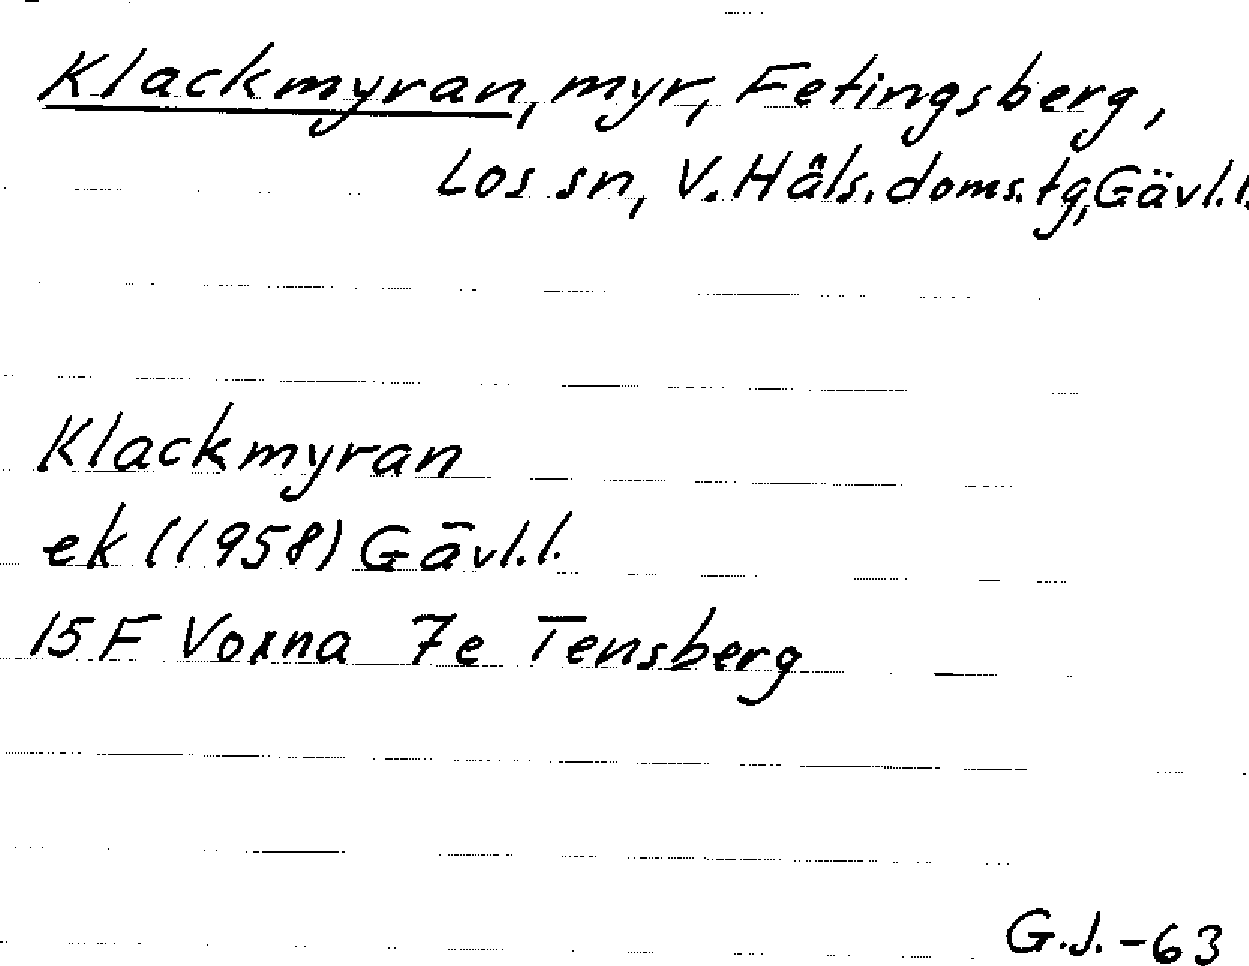 Klackmyran, myr, Fetingsberg,
Los sn, V. Häls. doms. tg, Gävl. l.
Klackmyran
ek (1958) Gävl. l.
15 F Voxna 7e Tensberg
G.J. -63